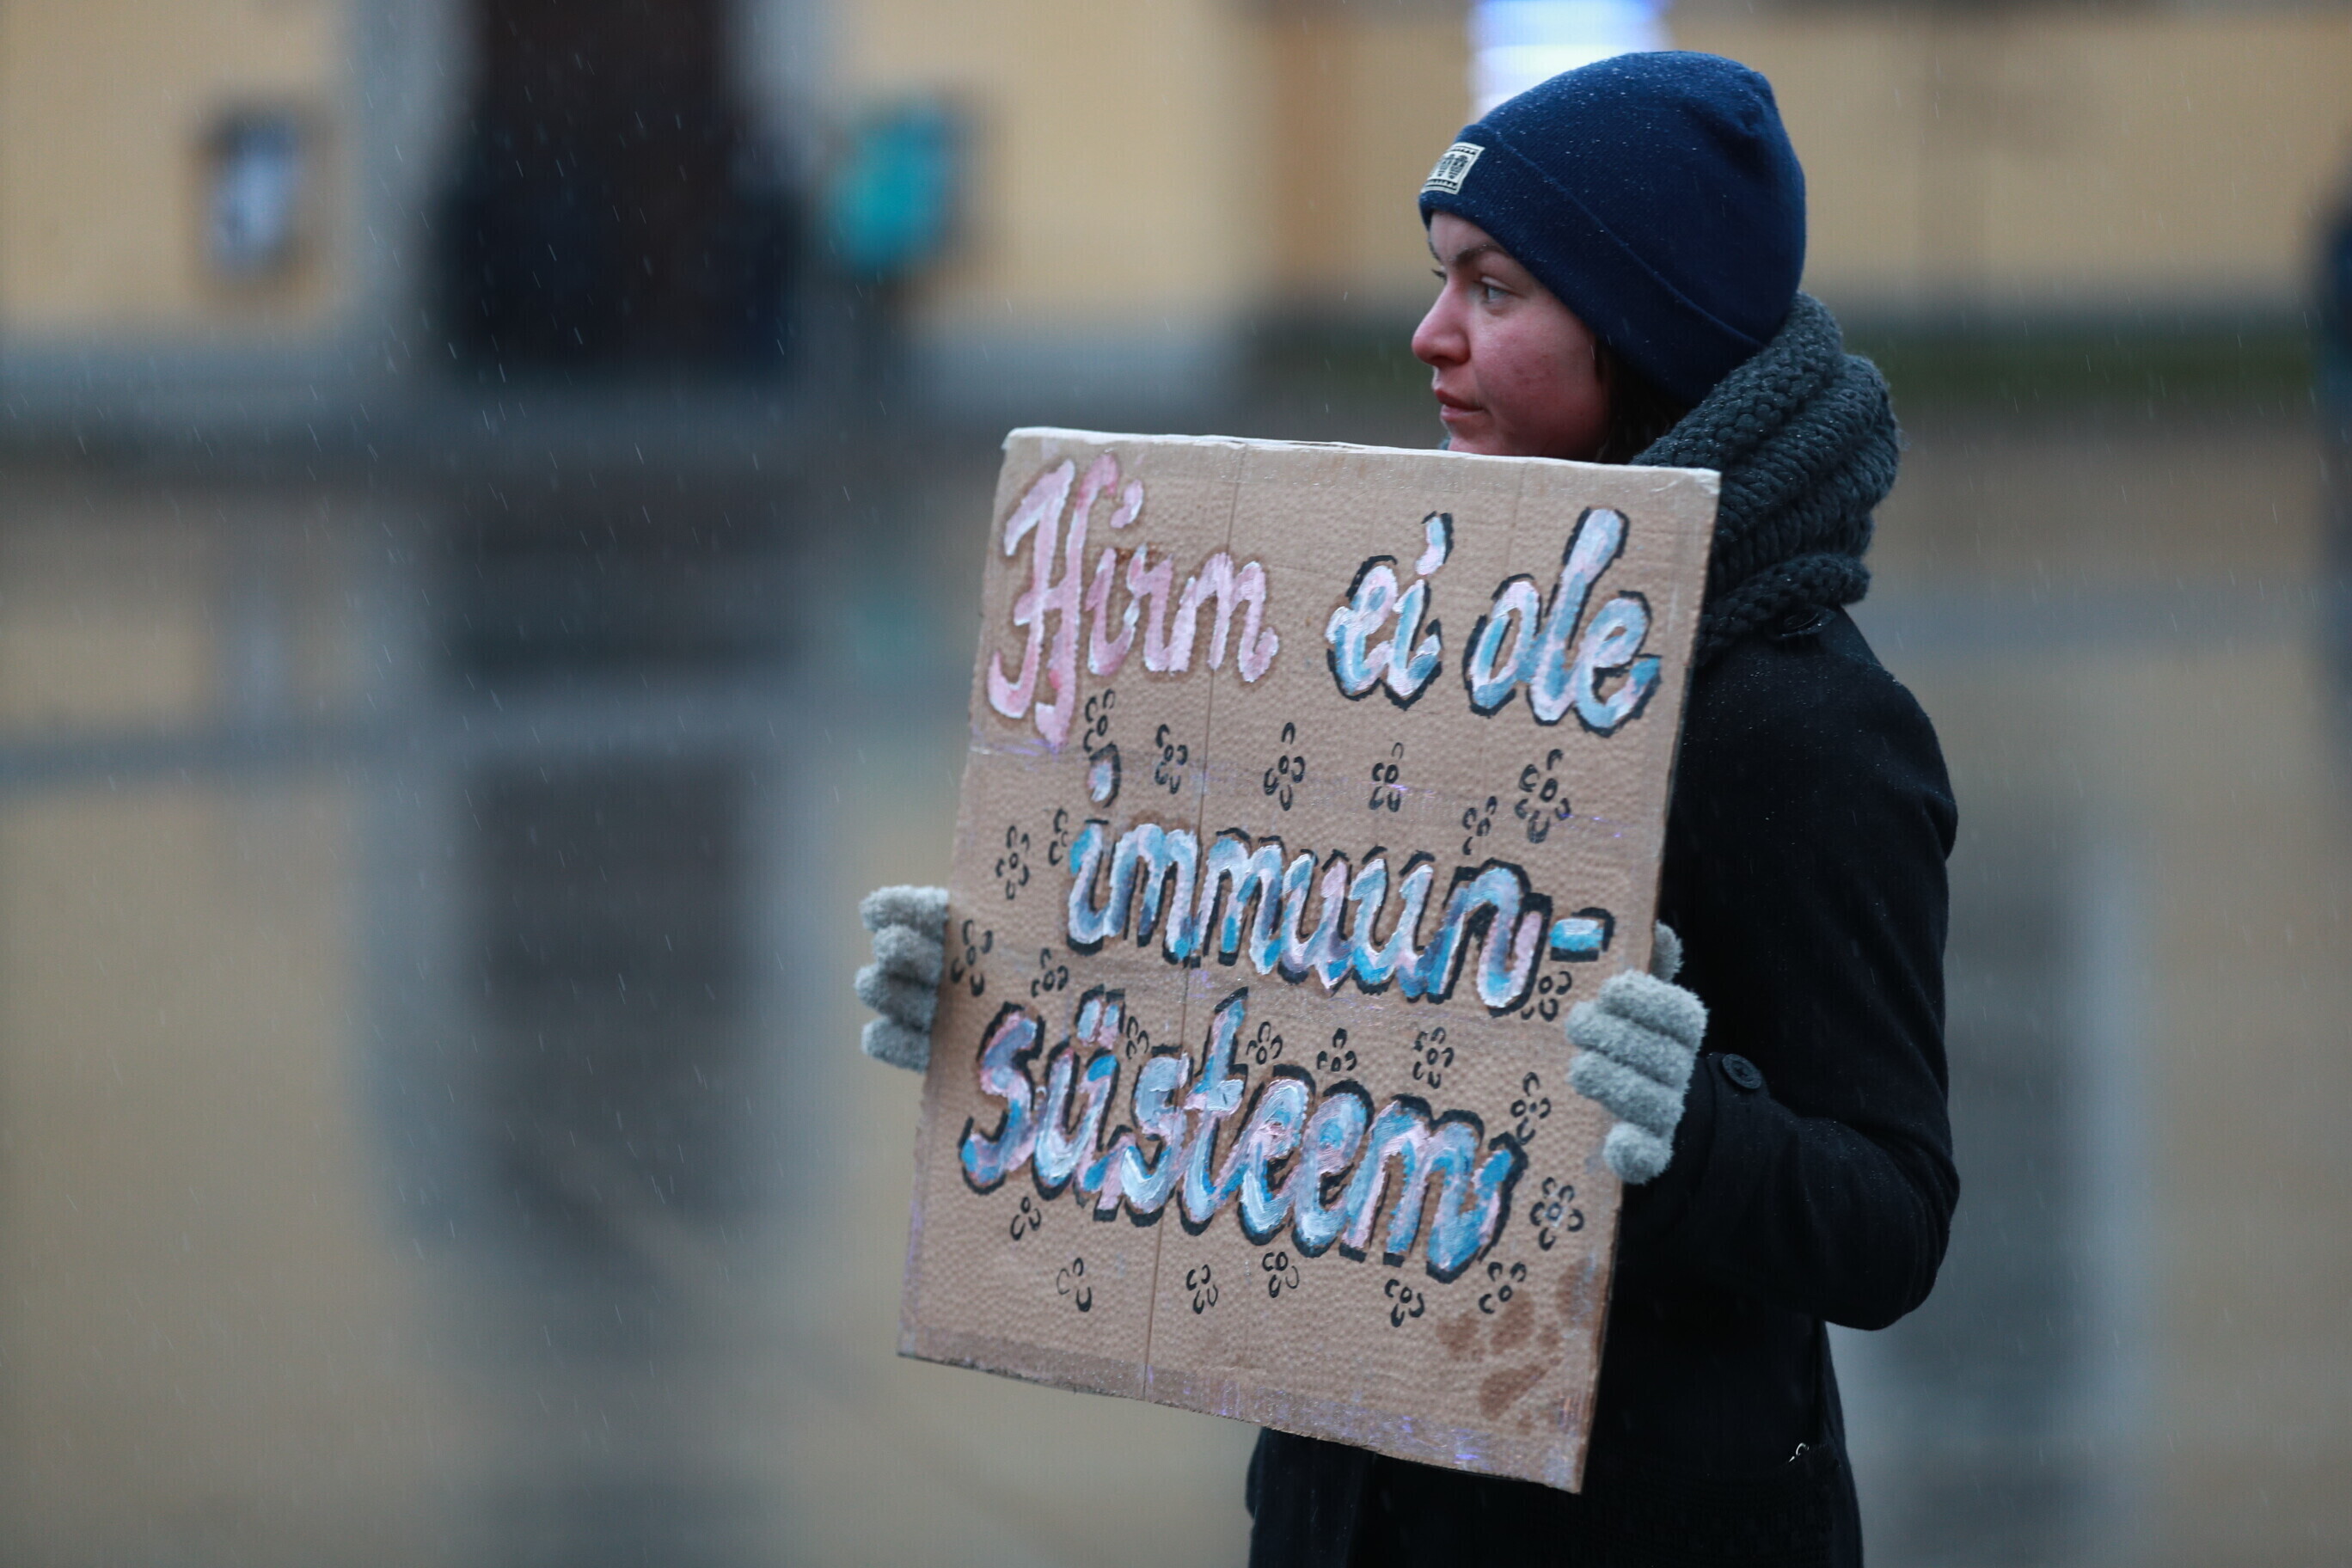 Hirm ei ole
immuun-
süsteem